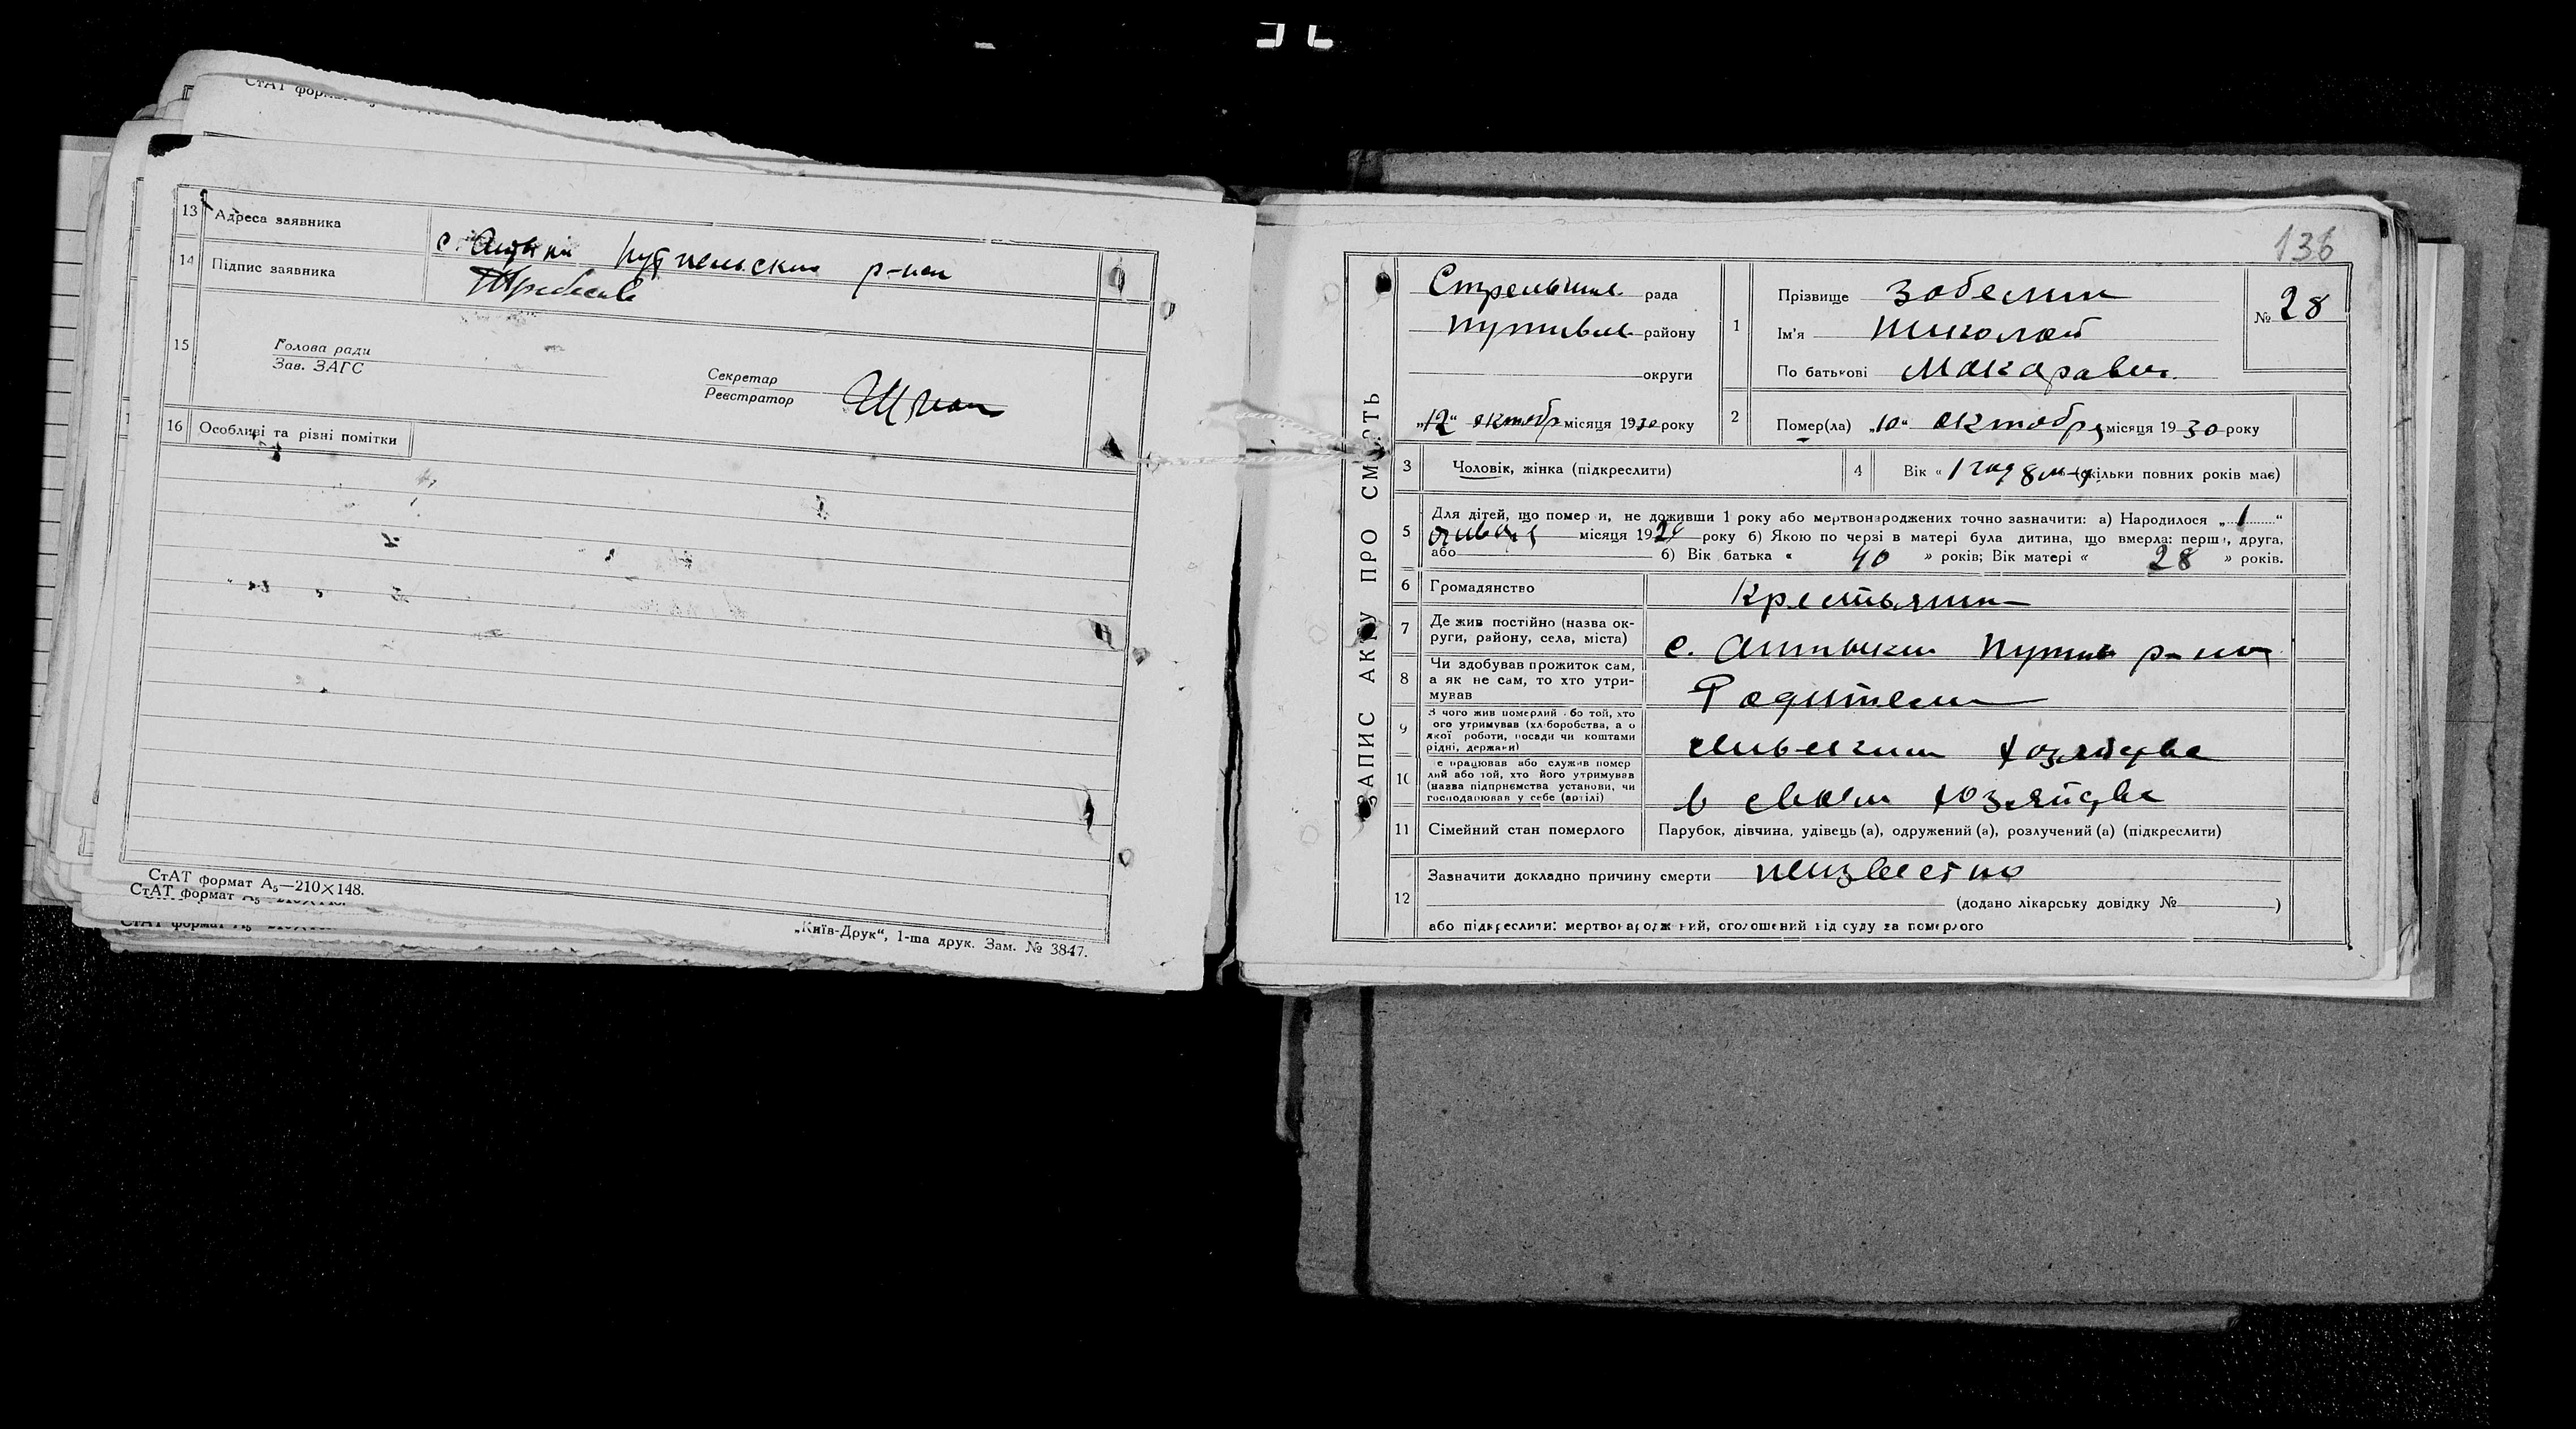 СтАТ формат
13 Адреса заявника с. Антыки р-на
14 Підпис заявника
15 Голова ради
Зав. ЗАГС
Секретар
Реєстратор
16 Особливі та різні помітки
СтАТ формат А₅—210×148.
СтАТ формат А₅—210×148.
СтАТ формат А₅—210×148.
„Київ-Друк“, 1-ша друк. Зам. № 3847.
136
ЗАПИС АКТУ ПРО СМЕРТЬ
рада
Путивл района
району
округи
„12“ октябр місяця 1930 року
1 Прізвище Зобелин
Ім'я Николай
По батькові Макарович
№ 28
2 Помер(ла) „10“ октября місяця 1930 року
3 Чоловік, жінка (підкреслити)
4 Вік « 1 год 8 м-ц (скільки повних років має)
5 Для дітей, що померли, не доживши 1 року або мертвонароджених точно зазначити: а) Народилося „ 1 “
января місяця 192 року б) Якою по черзі в матері була дитина, що вмерла: перша, друга,
або б) Вік батька « 40 » років; Вік матері « 28 » років.
6 Громадянство Крестьянин
7 Де жив постійно (назва округи, району, села, міста) с. Антыки Путив р-на
8 Чи здобував прожиток сам,
а як не сам, то хто утримував Родители
9 З чого жив померлий або той, хто
його утримував (хліборобства, або
якої роботи, посади чи коштами
рідні, держави) хозяйства
10 Де працював або служив померлий або той, хто його утримував
(назва підприємства установи, чи
господарював у себе (артілі) в своем хозяйстве
11 Сімейний стан померлого Парубок, дівчина, удівець (а), одружений (а), розлучений (а) (підкреслити)
12 Зазначити докладно причину смерти неизвестно
(додано лікарську довідку № )
або підкреслити: мертвонароджений, оголошений від суду за померлого